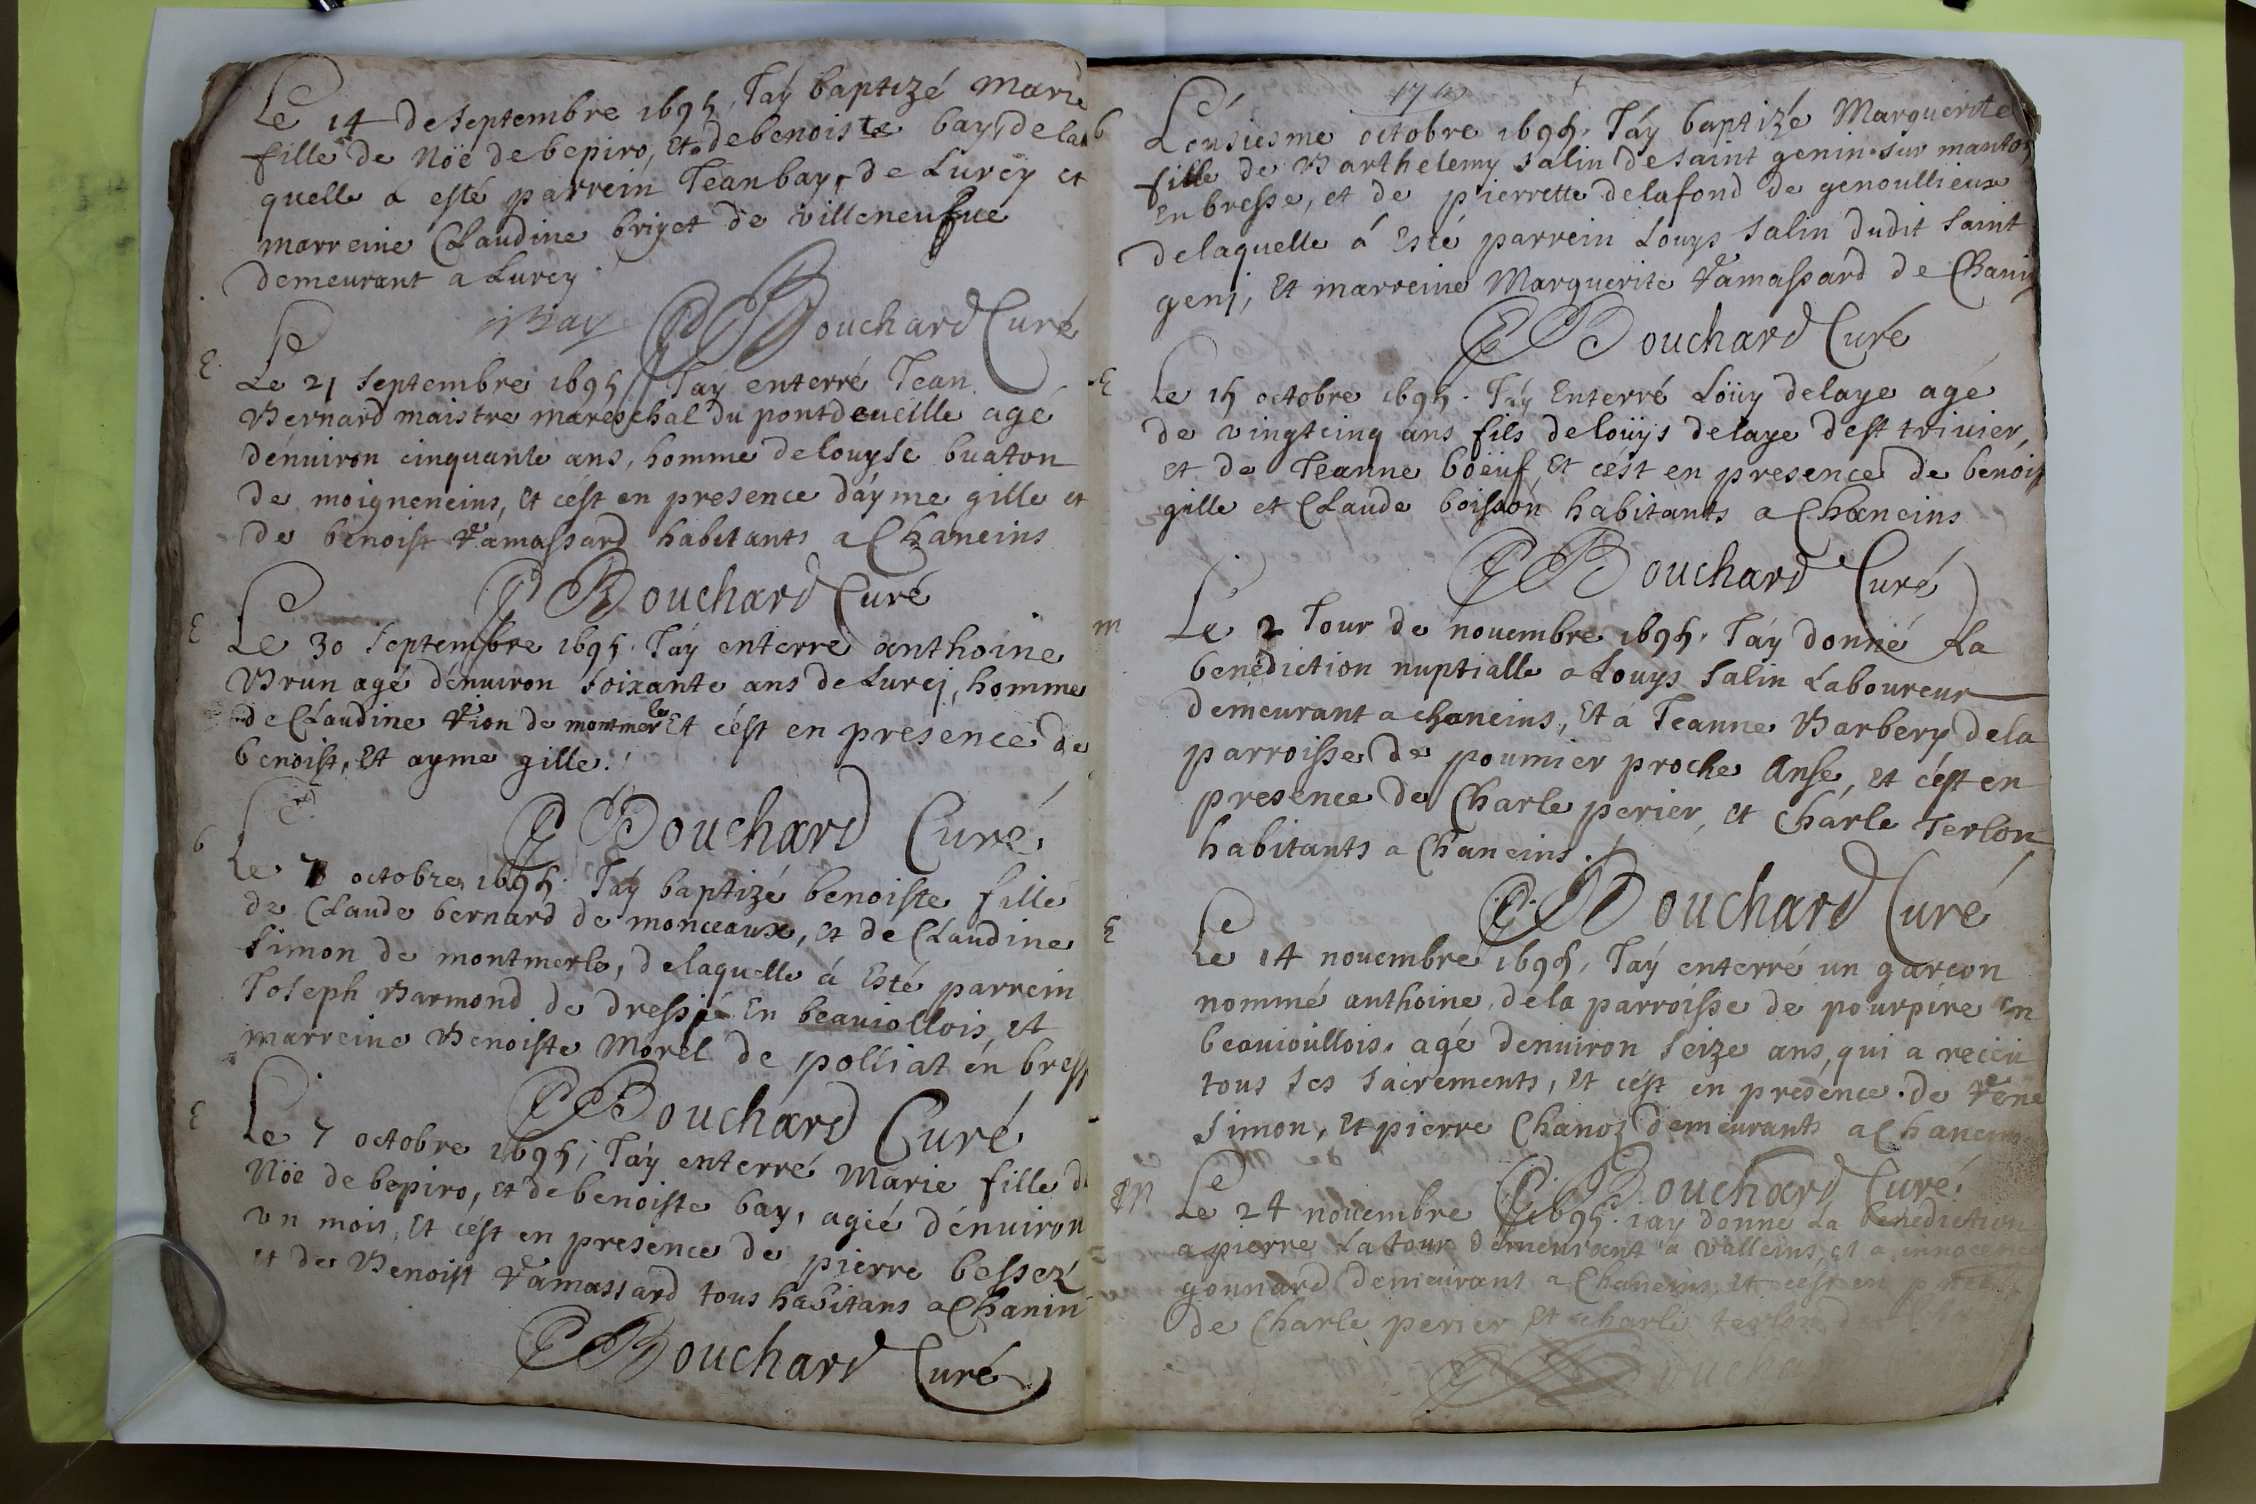 Le 14 de septembre 1695, J'aÿ baptizé Marie
fille de Nöe debepiro, et debenoiste bay, de la
quelle a esté parrein Jean bay, de Lurcy et
marreine Claudine briyet de villeneufue
demeurant a Lurcy
Bay Bouchard Curé
E
Le 21 septembre 1695 J'aÿ enterré Jean
Bernard maistre mareschal du pontdeueille agé
dénuiron cinquante ans, homme delouyse buaton
de moigneneins, et cést en presence dáyme gille et
de benoist Ramassard habitants a Chaneins
Bouchard Curé
E
Le 30 septembre 1695. J'áy enterré anthoine
Brun agé dénuiron soixante ans de Lurcj, homme
de Claudine Rion de montmerle Et cést en presence de
benoist, Et ayme gille.
Bouchard Curé
b
Le 7 octobre 1695. J'áy baptizé benoiste fille
de Claude bernard de monceaux, et de Claudine
simon de montmerle, delaquelle á Esté parrein
Joseph Barmond de dressié En beauiollois, et
marreine Benoiste Morel de polliat én bress
Bouchard Curé
E
Le 7 octobre 1695; J'áy enterré Marie fille d
Nöe debepiro, et debenoiste bay, agéé dénuiron
vn mois, Et cést en presence de pierre bessez
et de Benoist Ramassard tous habitans a Chanin
Bouchard Curé
b
Léusiesme octobre 1695. J'áy baptizé Marguerite
fille de Barthelemy salin de saint genin sur manton
En bresse, et de pierrette delafond de genoullieux
delaquelle á Esté parrein Louys salin dudit saint
genj, Et marreine Marguerite Ramassard de Chanin
Bouchard Curé
E
Le 15 octobre 1695. J'áy Enterré Loüy delaye agé
de vingtcinq ans fils deloüys delaye dest triuier,
et de Jeanne böeuf, Et cést en presence de benoist
gille et Claude boisson habitants a Chaneins
Bouchard Curé
m
Le 2 Jour de nouembre 1695. J'áy donné La
benediction nuptialle a Louys salin Laboureur
demeurant a chaneins, Et á Jeanne Barbery dela
parroisse de poumier proche Anse, et cést en
presence de Charle perier, et Chárle Terlon
habitants a Chaneins.
Bouchard Curé
E
Le 14 nouembre 1695, J'áÿ enterré un garcon
nommé anthoine, dela parroisse de pourpire En
beauioullois, agé denuiron seize ans, qui a receu
tous ses sacrements, Et cést en presence de Rene
simon, Et pierre Chanoz demeurants a Chaneins
Bouchard Curé
m
Le 24 nouembre 1695. iay donne La benediction
a pierre Latour demeurant a valleins, et a innocence
gonnard demeurant a Chaneins, et cest en
de Charle perier Et charle terlon
Bouchard